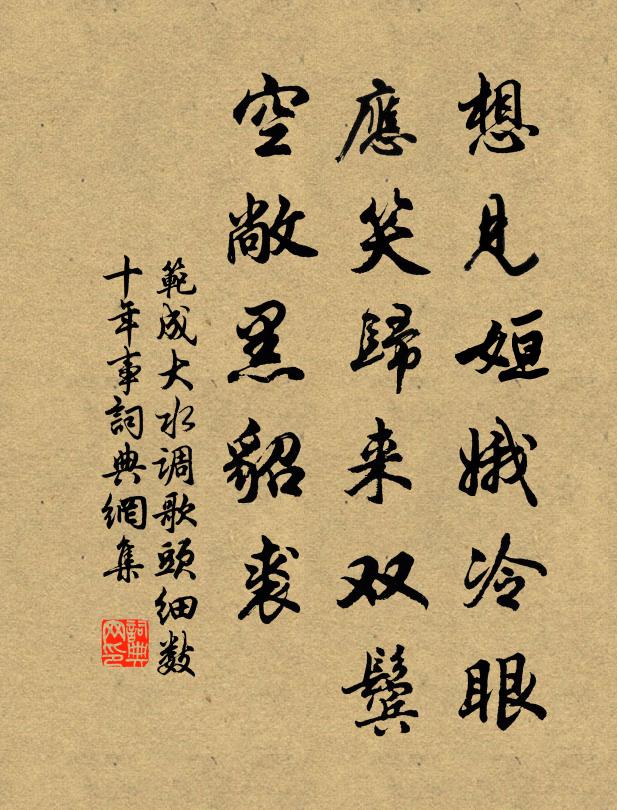 想见姮娥冷眼
應笑歸来双鬓
空敞黑貂裘
範成大水调歌頭细数
十年事詞典網集
詞典网印